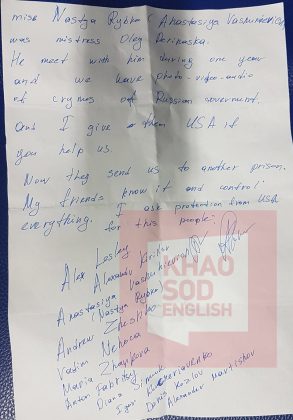 miss Nastya Rybka (Anastasiya Vashukevich)
was mistress Oleg Deripaska.
He meet with him during one year
and we have photo-video-audio
of crymes of Russian goverment.
and I give them USA if
you help us.
Now they send us to another prison.
My friends know it and control
everything. I ask protection from USA
for this people:
Alex Lesley
Alexandr Kirillov
Anastasiya Vashukevich
(Nastya Rybka)
Andrew
Vadim Zhestko
Maria Nehoca
Anton Fabritsky Zharkova
Diana Simonk
Igor
Denis Kozlov
Alexander
KHAO
SOD
ENGLISH